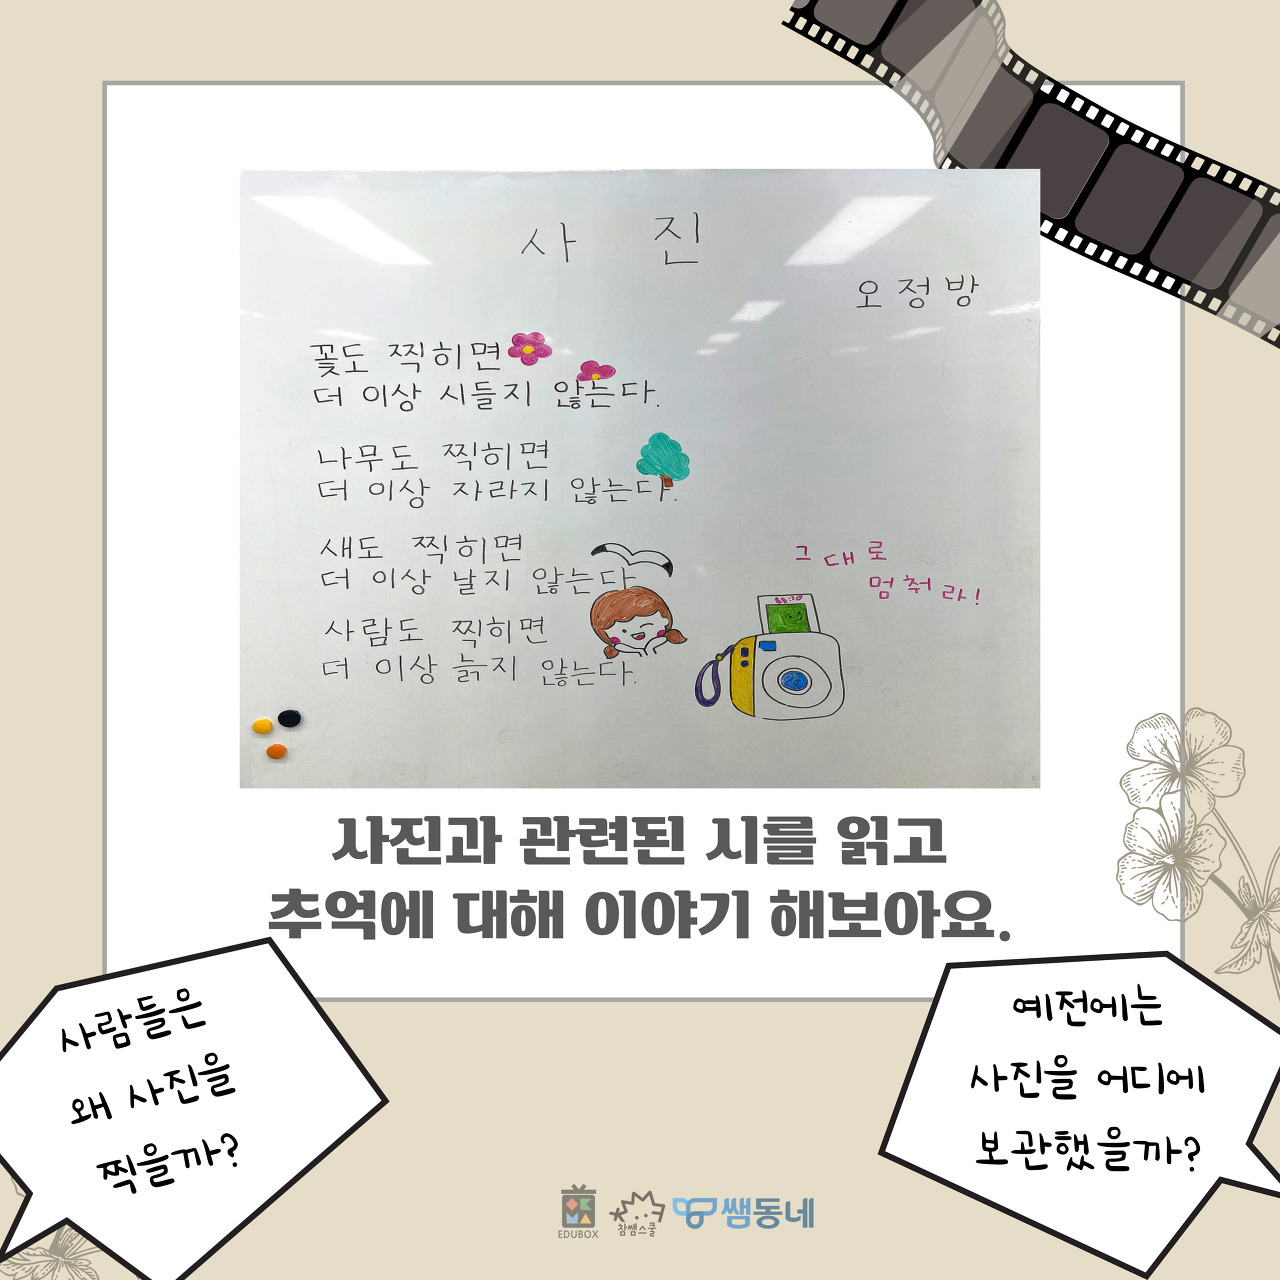 사 진
오정방
꽃도 찍히면
더 이상 시들지 않는다.
나무도 찍히면
더 이상 자라지 않는다.
새도 찍히면
더 이상 날지 않는다
사람도 찍히면
더 이상 늙지 않는다.
그대로
멈춰라!
사진과 관련된 시를 읽고
추억에 대해 이야기 해보아요.
사람들은
왜 사진을
찍을까?
예전에는
사진을 어디에
보관했을까?
EDUBOX
참쌤스쿨
쌤동네